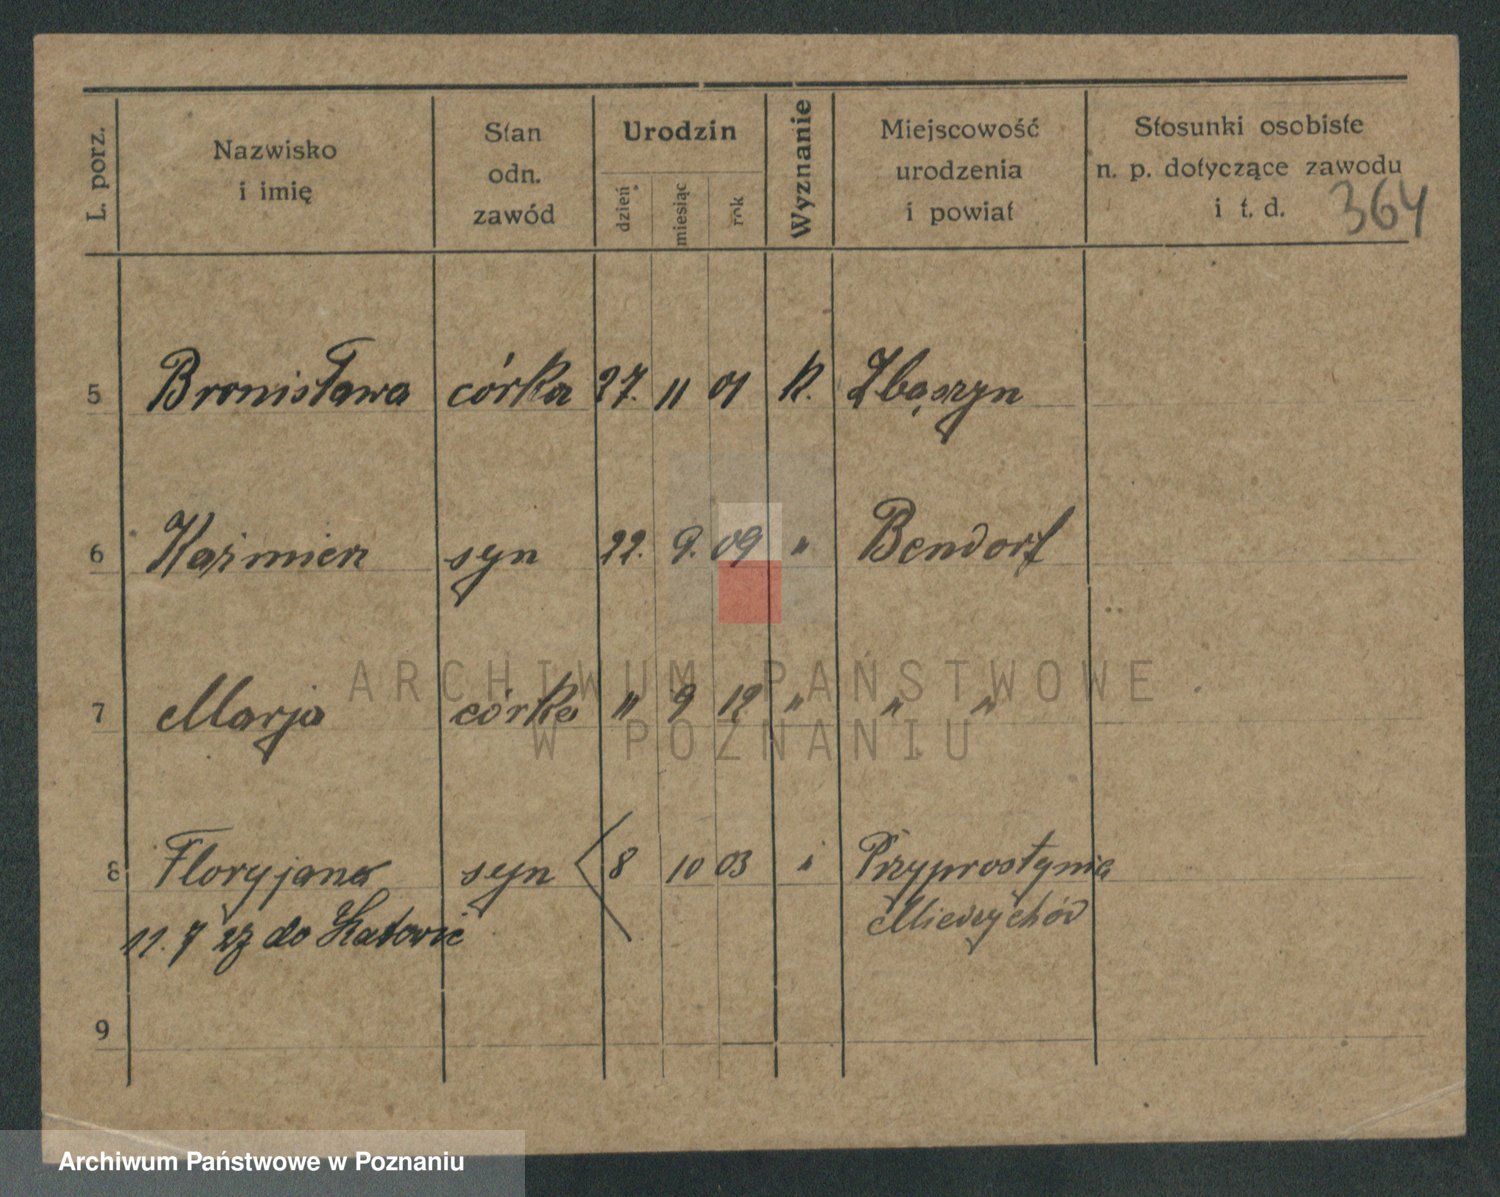 L. porz. Nazwisko i imię Stan odn. zawód Urodzin dzień miesiąc rok Wyznanie Miejscowość urodzenia i powiat Stosunki osobiste n. p. dotyczące zawodu i t. d.
364
5 Bronisława córka 27. 11 01 K. Zbąszyn
6 Kaźmierz syn 22. 9. 09 " Bendorf
7 Marja córka " 9 12 " " "
8 Floryjana syn 8 10 03 " Przyprostynia
11. 7 27 do Katowic Miedzychód
9
ARCHIWUM PAŃSTWOWE
W POZNANIU
Archiwum Państwowe w Poznaniu